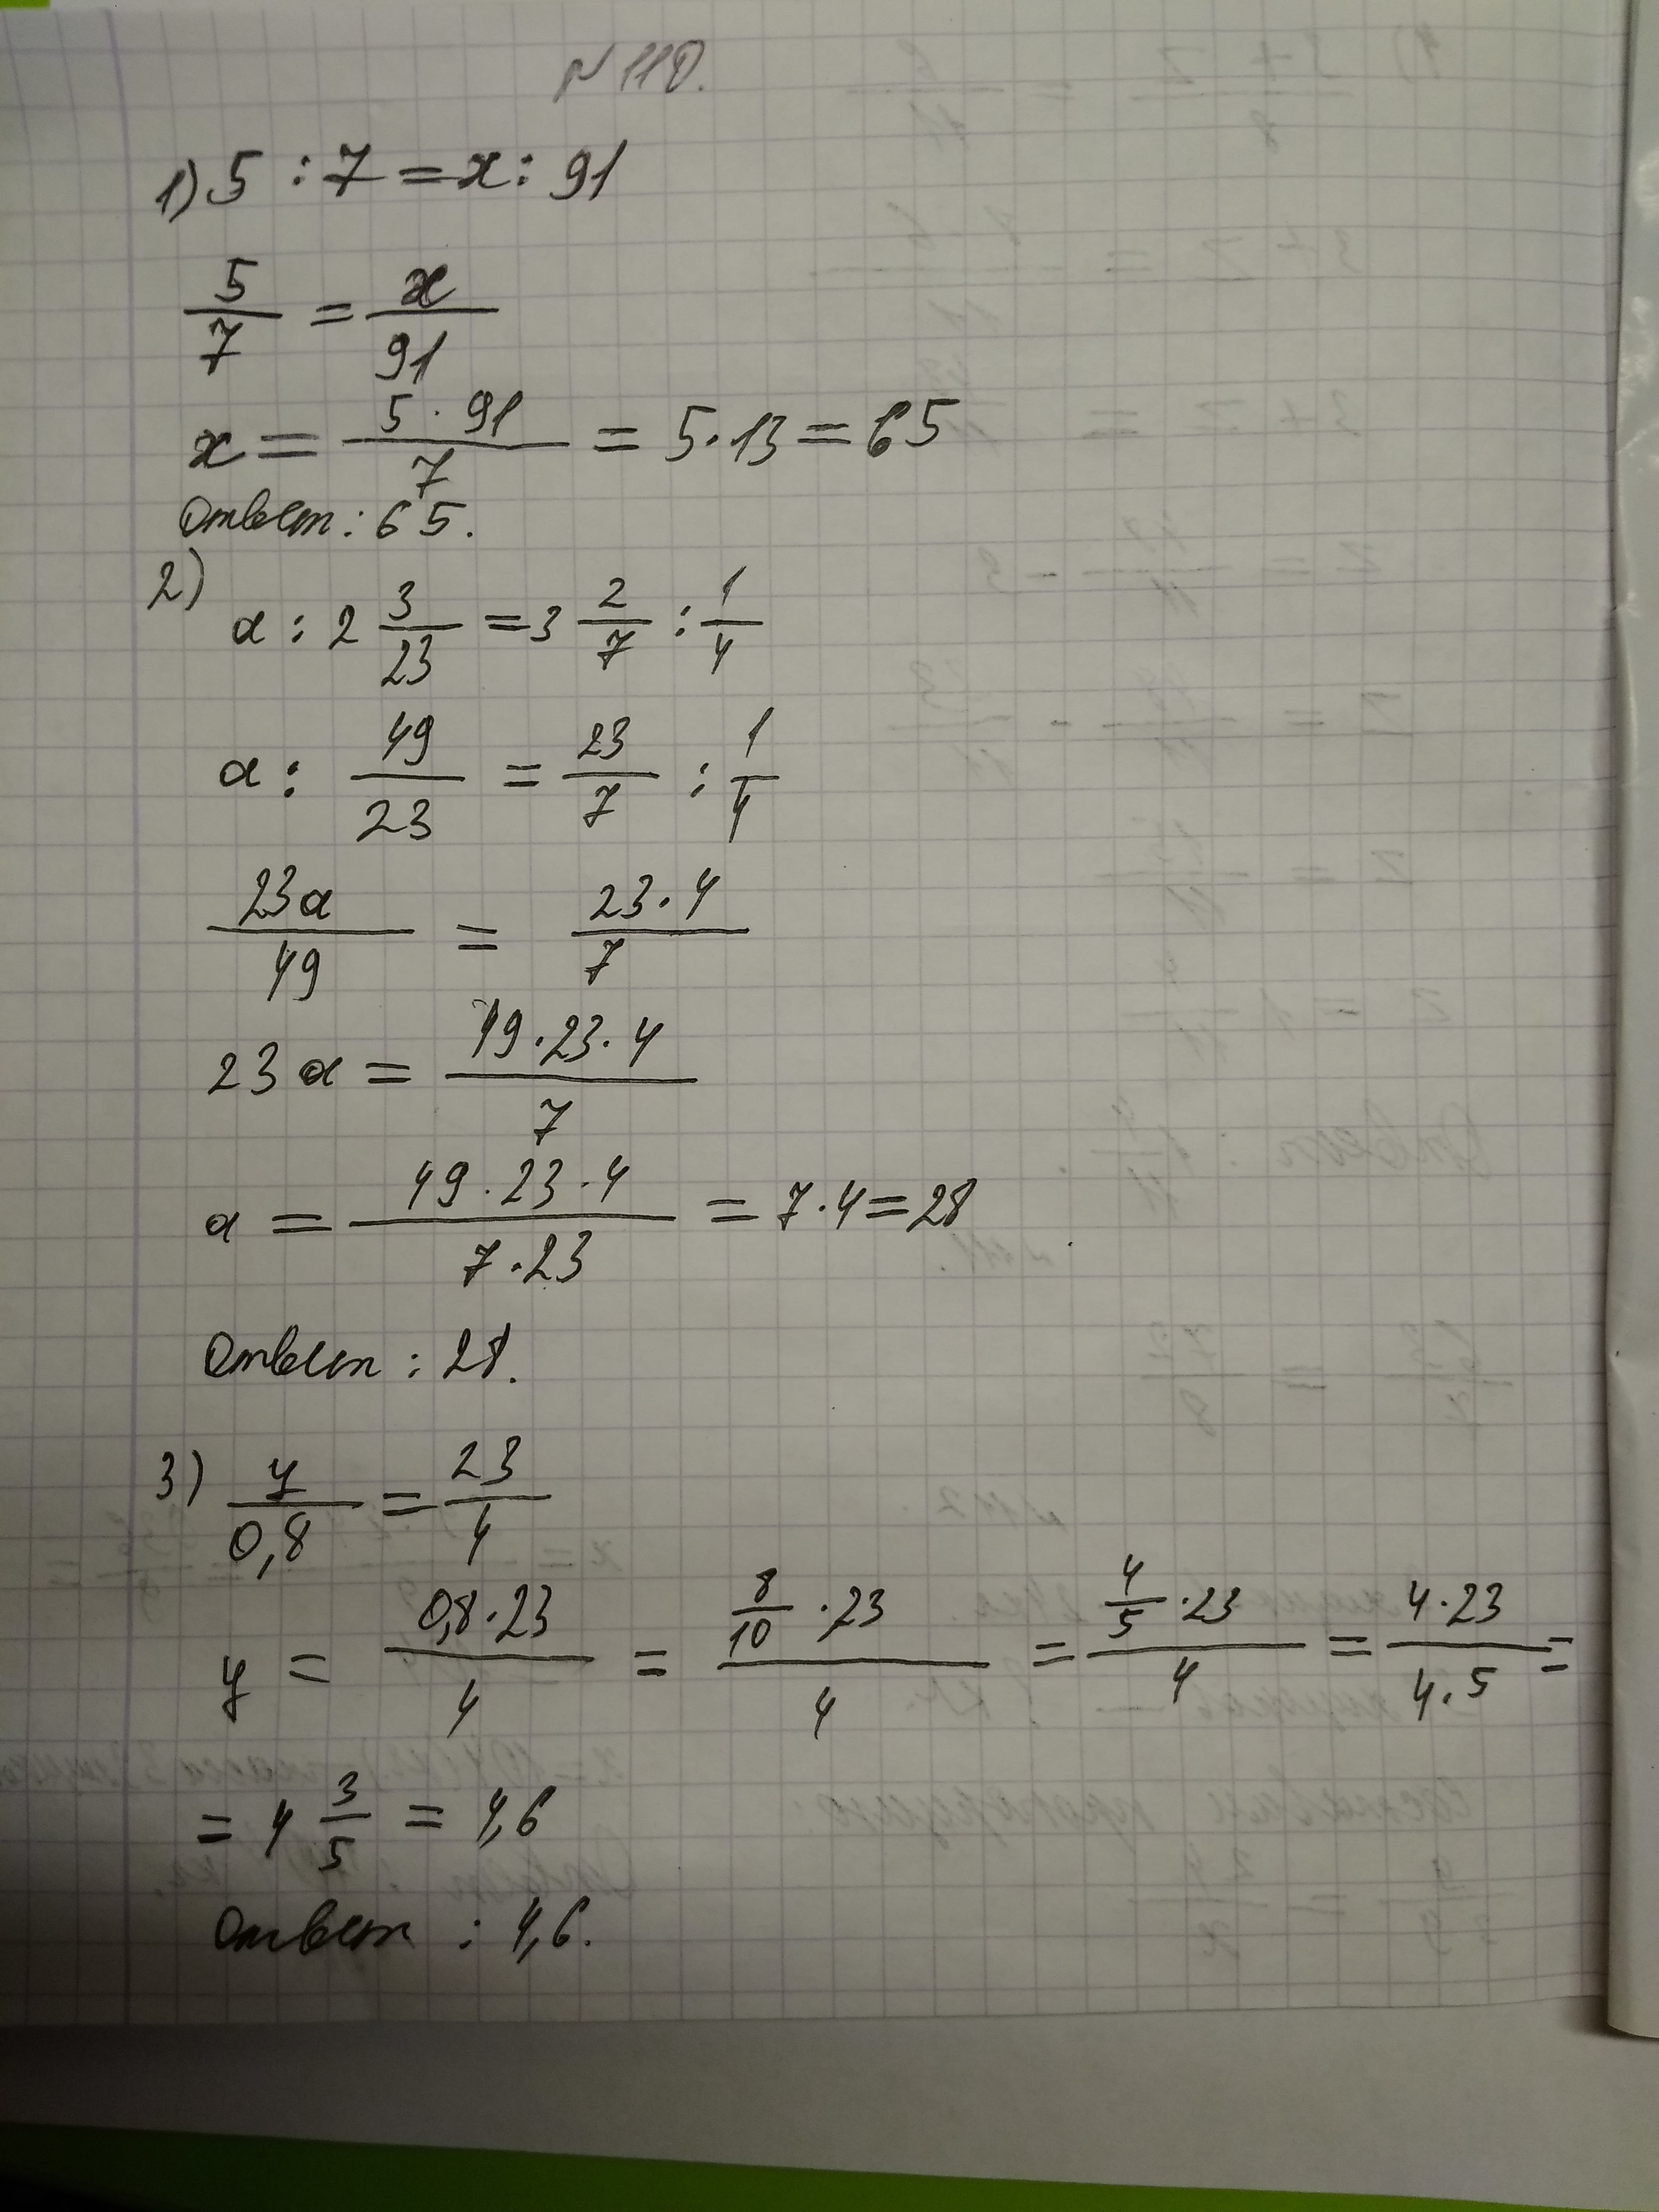 №110.
1) 5 : 7 = x : 91
5/7 = x/91
x = (5 · 91)/7 = 5 · 13 = 65
Ответ: 65.
2) a : 2 3/23 = 3 2/7 : 1/4
a : 49/23 = 23/7 : 1/4
23a/49 = (23 · 4)/7
23a = (49 · 23 · 4)/7
a = (49 · 23 · 4)/(7 · 23) = 7 · 4 = 28
Ответ: 28.
3) y/0,8 = 23/4
y = (0,8 · 23)/4 = (8/10 · 23)/4 = (4/5 · 23)/4 = (4 · 23)/(4 · 5) =
= 4 3/5 = 4,6
Ответ: 4,6.